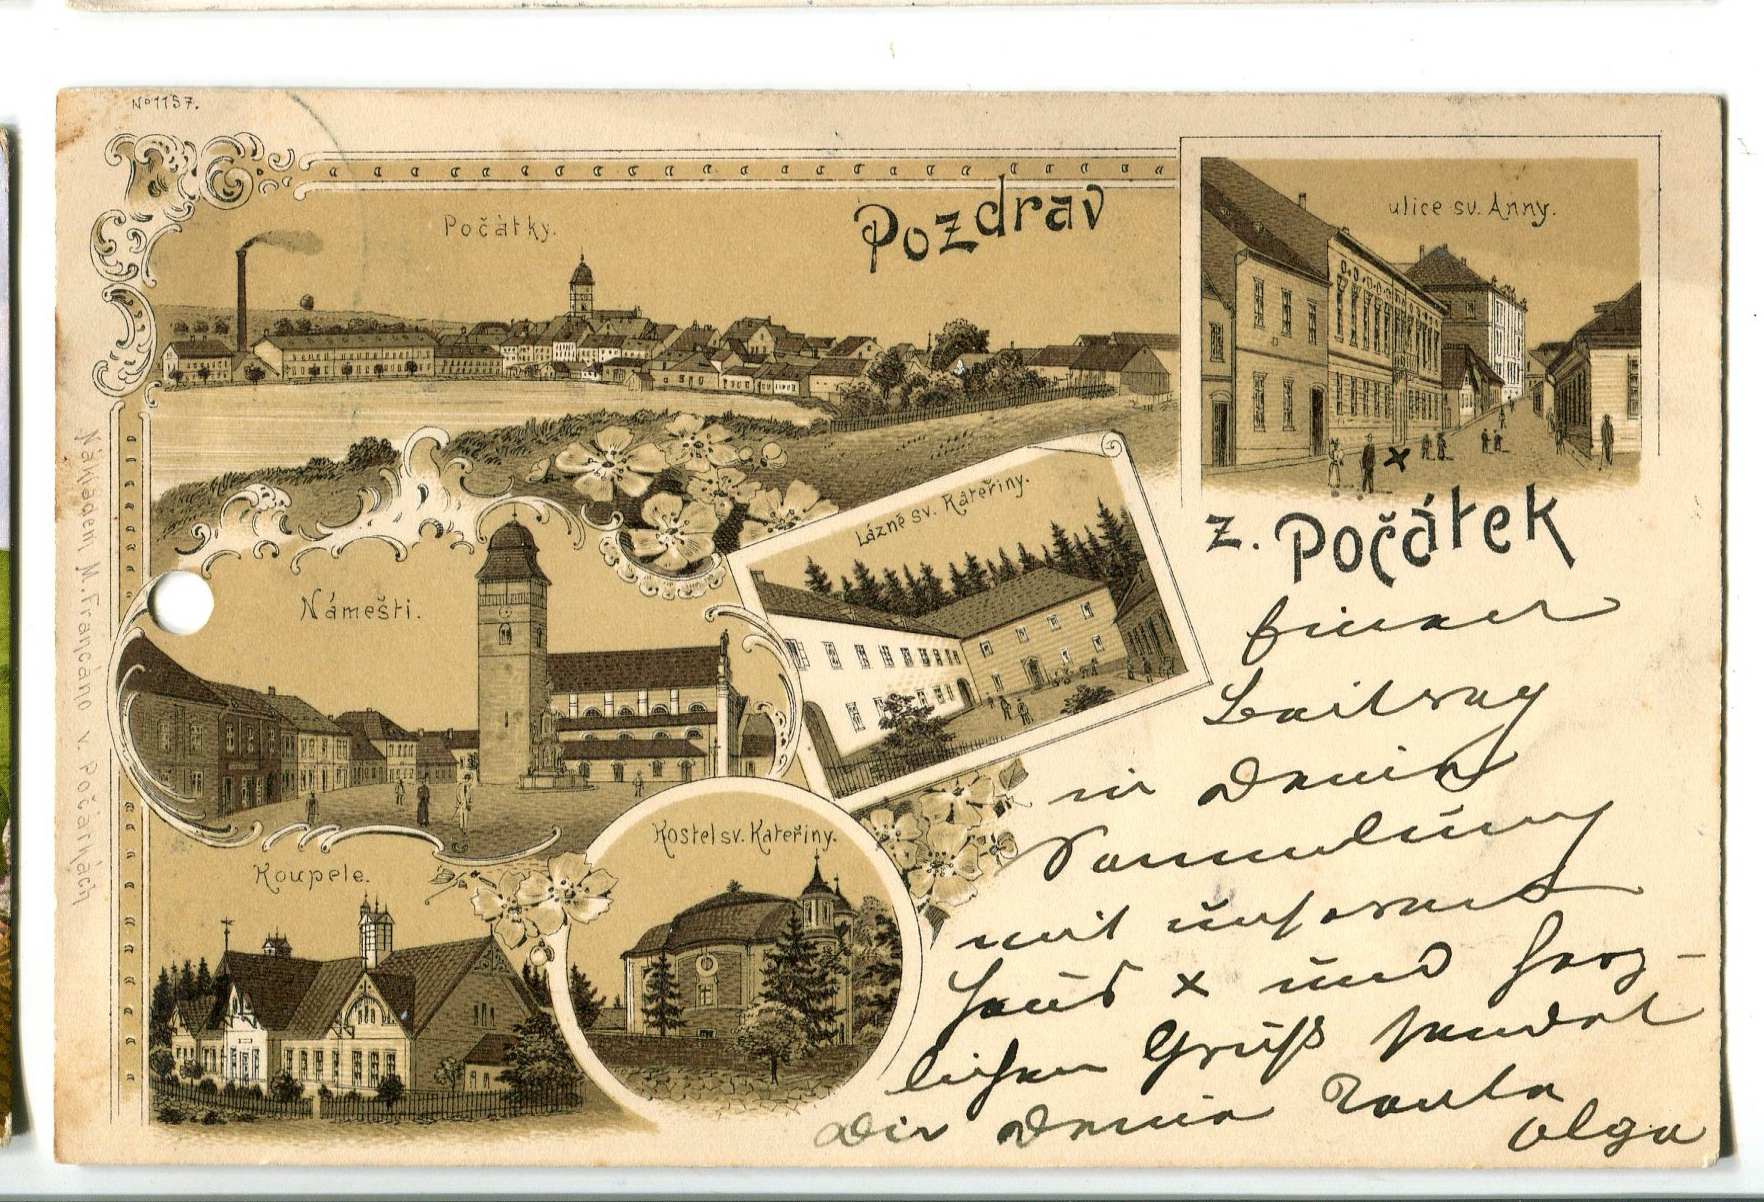 No 1157.
Počátky.
Pozdrav
ulice sv. Anny.
z. Počátek
Lázně sv. Kateřiny.
Náměšti.
Kostel sv. Kateřiny.
Koupele.
Nákladem M. Frančáno v Počátkách
Einen
Beitrag
in Deine
Sammlung
mit unserem
Haus x und herz-
lichen Gruß sendet
Dir Deine Tante
Olga